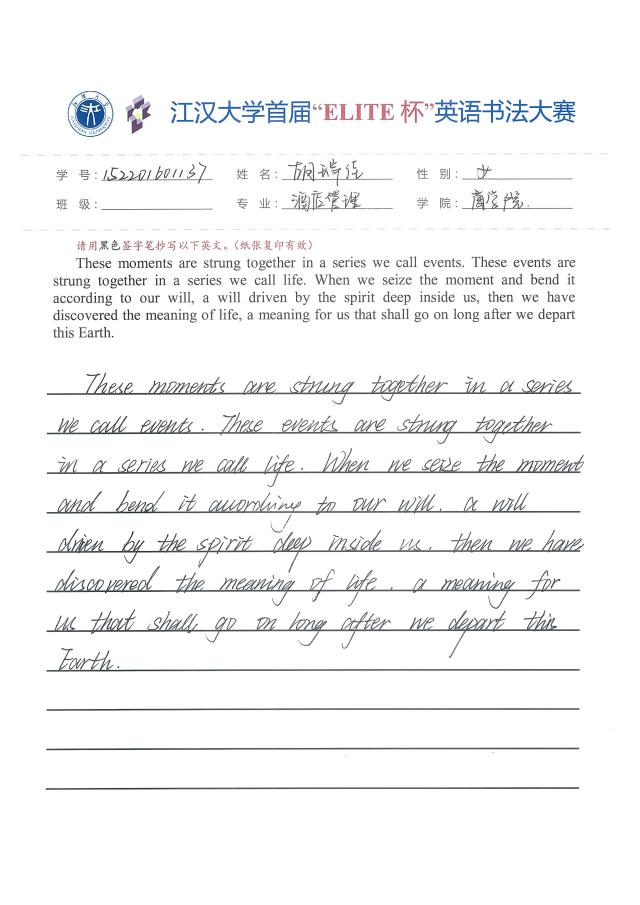 江汉大学首届“ELITE 杯”英语书法大赛
学 号：152201601137 姓 名：胡瑞佳 性 别：女
班 级： 专 业：酒店管理 学 院：商学院.
请用黑色签字笔抄写以下英文。（纸张复印有效）
These moments are strung together in a series we call events. These events are
strung together in a series we call life. When we seize the moment and bend it
according to our will, a will driven by the spirit deep inside us, then we have
discovered the meaning of life, a meaning for us that shall go on long after we depart
this Earth.
These moments are strung together in a series
we call events. These events are strung together
in a series we call life. When we seize the moment
and bend it according to our will, a will
driven by the spirit deep inside us, then we have
discovered the meaning of life, a meaning for
us that shall go on long after we depart this
Earth.